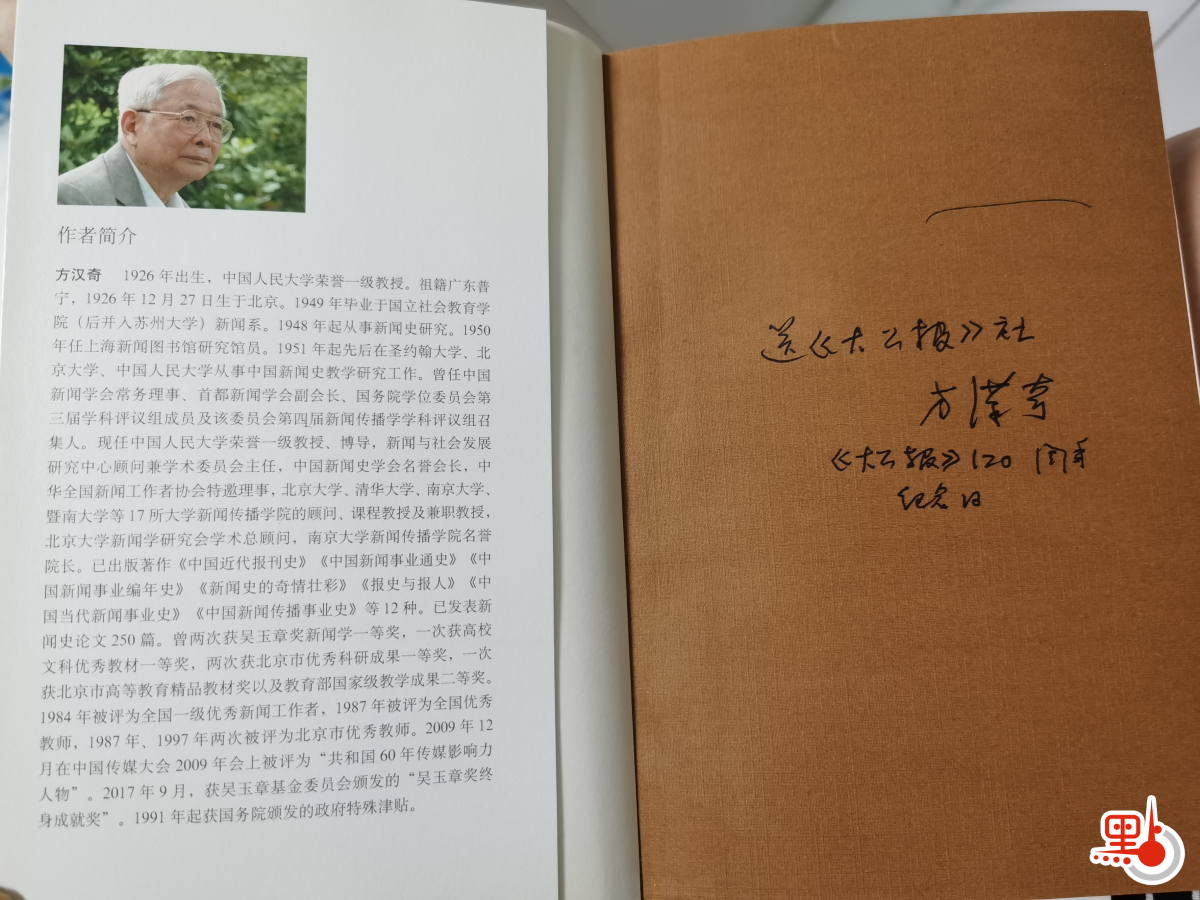 作者简介
方汉奇 1926 年出生，中国人民大学荣誉一级教授。祖籍广东普
宁，1926 年 12 月 27 日生于北京。1949 年毕业于国立社会教育学
院（后并入苏州大学）新闻系。1948 年起从事新闻史研究。1950
年任上海新闻图书馆研究馆员。1951 年起先后在圣约翰大学、北
京大学、中国人民大学从事中国新闻史教学研究工作。曾任中国
新闻学会常务理事、首都新闻学会副会长、国务院学位委员会第
三届学科评议组成员及该委员会第四届新闻传播学学科评议组召
集人。现任中国人民大学荣誉一级教授、博导，新闻与社会发展
研究中心顾问兼学术委员会主任，中国新闻史学会名誉会长，中
华全国新闻工作者协会特邀理事，北京大学、清华大学、南京大学、
暨南大学等 17 所大学新闻传播学院的顾问、课程教授及兼职教授，
北京大学新闻学研究会学术总顾问，南京大学新闻传播学院名誉
院长。已出版著作《中国近代报刊史》《中国新闻事业通史》《中
国新闻事业编年史》《新闻史的奇情壮彩》《报史与报人》《中
国当代新闻事业史》《中国新闻传播事业史》等 12 种。已发表新
闻史论文 250 篇。曾两次获吴玉章奖新闻学一等奖，一次获高校
文科优秀教材一等奖，两次获北京市优秀科研成果一等奖，一次
获北京市高等教育精品教材奖以及教育部国家级教学成果二等奖。
1984 年被评为全国一级优秀新闻工作者，1987 年被评为全国优秀
教师，1987 年、1997 年两次被评为北京市优秀教师。2009 年 12
月在中国传媒大会 2009 年会上被评为“共和国 60 年传媒影响力
人物”。2017 年 9 月，获吴玉章基金委员会颁发的“吴玉章奖终
身成就奖”。1991 年起获国务院颁发的政府特殊津贴。
送《大公报》社
方漢奇
《大公报》120 周年
纪念日
點